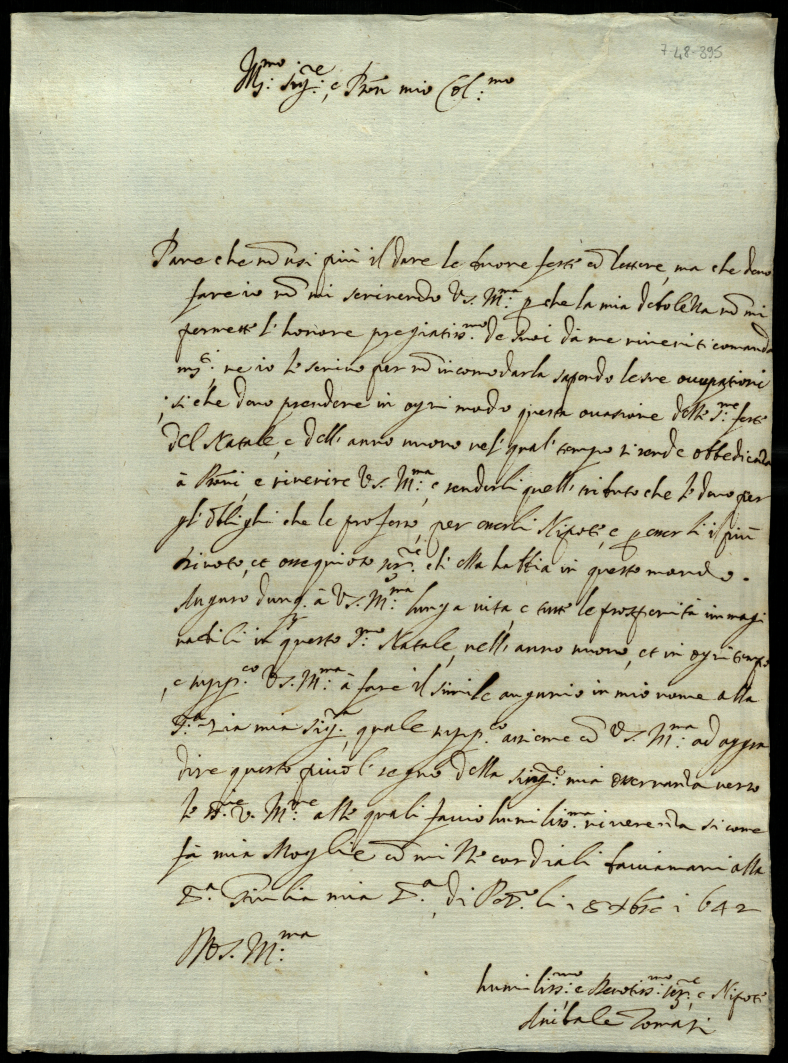 7-48-895
Ill.mo Sig.re, e Pron mio Col.mo
Pare che nõ usi più il dare le buone feste cõ lettere, ma che devo
fare io nõ mi scrivendo V.S. Ill.ma p che la mia debolezza nõ mi
permette l'honore pregiatiss.mo de suoi da me riveriti comanda
m.ti, ne io le scrivo per nõ incomodarla sapendo le sue occupationi
, si che devo prendere in ogni modo questa occasione delle S.me feste
del Natale, e dell'anno nuovo nel qual tempo si rende obbedienza
à Proni, e riverire V.S. Ill.ma, e renderli quell tributo che le devo per
gl'oblighi che le professo, per esserli Nipote, e p esserli il più
divoto, et ossequioso ser.re ch ella habbia in questo mondo.
Auguro dunq. à V.S. Ill.ma lunga vita, e tutte le prosperità immagi
nabili in questo S.mo Natale, nell'anno nuovo, et in ogni tempo
, e supp.co V.S. Ill.ma à fare il simile augurio in mio nome alla
S.ra Zia mia Sig.ra, quale supp.co assieme cõ V.S. Ill.ma ad aggra
dire questo picciol segno della mia osservanza verso
le V. Ill.me alle quali faccio humiliss.ma riverenza si come
fà mia Moglie cõ mille cordiali bacciamani alla
S.ra Giulia mia S.ra, di li 18 Xbre 1642
D V.S. Ill.ma
humiliss.mo e Devotiss.mo ser.re e Nipote
Anibale Tomasi